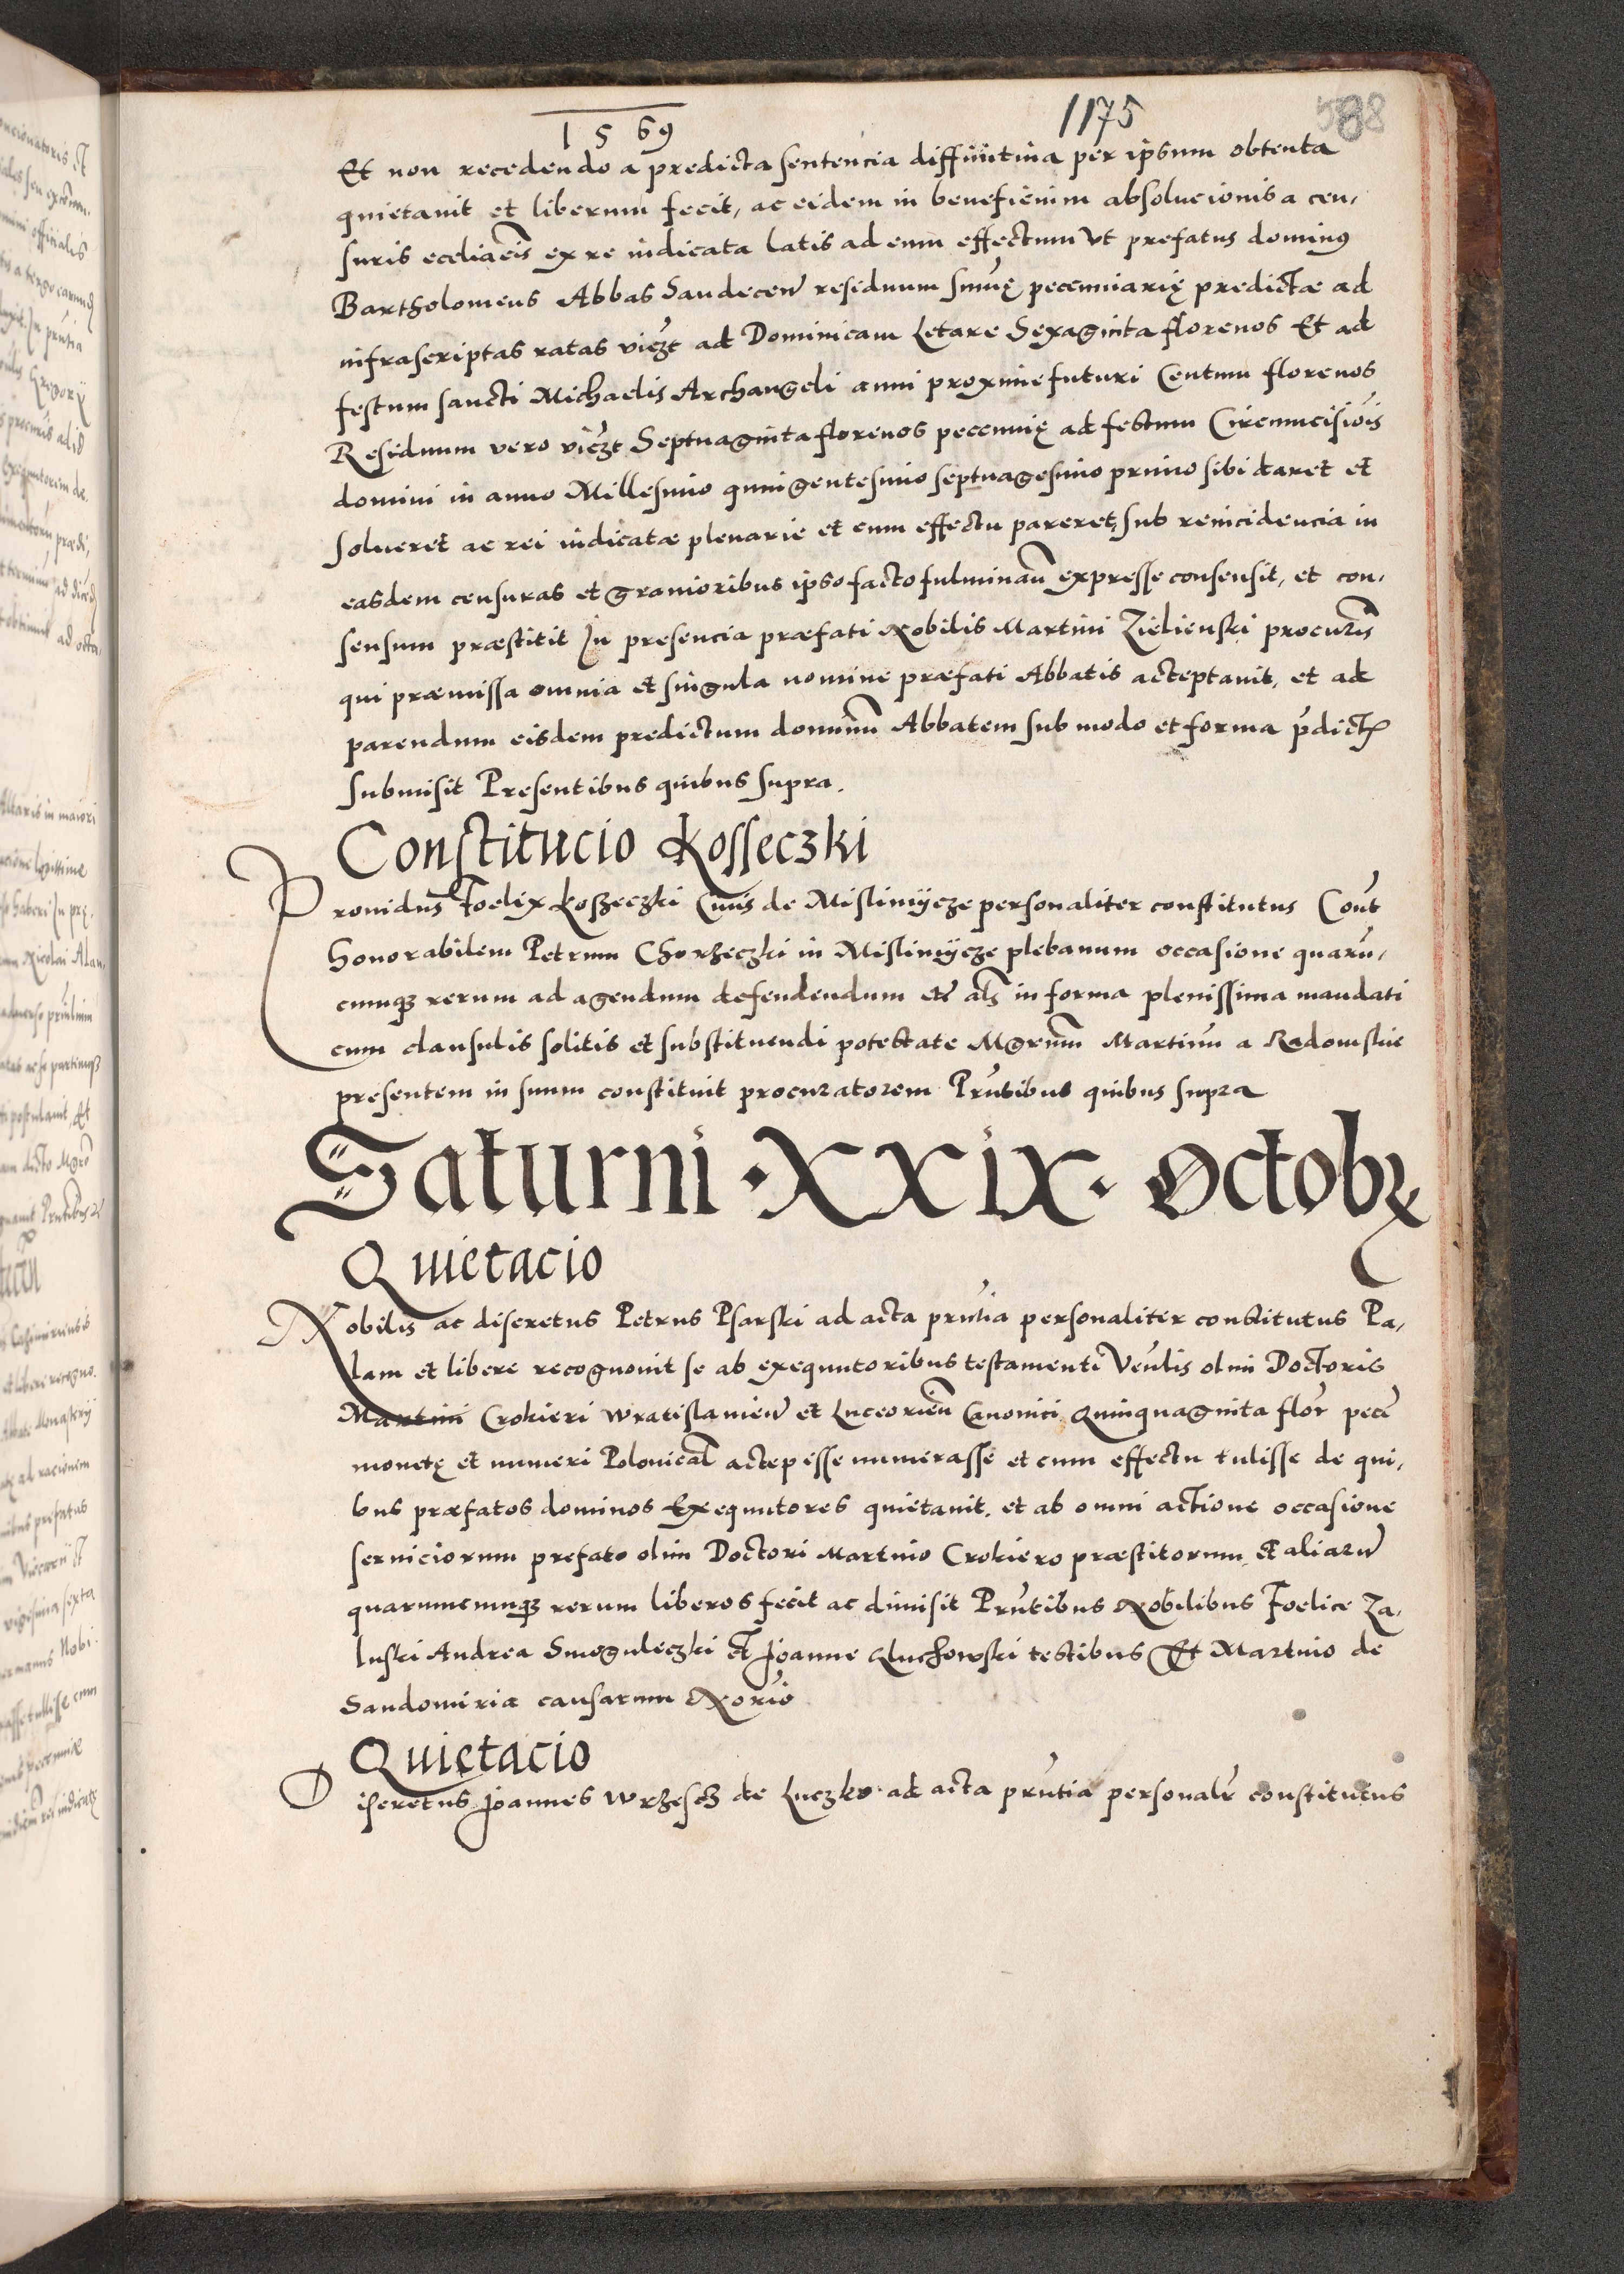 1569
1175
588
Et non recedendo a predicta sententia diffinitiua per ipsum obtenta
quietauit et liberum fecit, ac eidem in beneficium absolucionis a cen,
suris eccliacis ex re iudicata latis ad eum effectum Vt prefatus dominus
Bartholomeus Abbas Sandecen residuum smę pecenniarię predictæ ad
infrascriptas ratas viczt ad Dominicam Letare Sexaginta florenos Et ad
festum sancti Michaelis Archangeli anni proxime futuri Centum florenos
Residuum vero viczt Septuaginta florenos pecennię ad festum Circumcisiois
domini in anno Millesimo quingentesimo septuagesimo primo sibi daret et
solueret ac rei iudicatæ plenarie et cum effectu pareret, sub reincidencia in
easdem censuras et grauioribus ipso facto fulminan expresse consensit, et con,
sensum præstitit In presencia præfati Nobilis Martini Zielienski procuris
qui præmissa omnia et singula nomine præfati Abbatis acteptauit, et ad
parendum eisdem predictum dominum Abbatem sub modo et forma pdict
submisit Presentibus quibus supra.
Constitucio Kosseczki
Prouidus Foelix Koszeczki Ciuis de Misliniycze personaliter constitutus Cont
Honorabilem Petrum Chorzeczki in Misliniycze plebanum occasione quaru,
cumq; rerum ad agendum defendendum etc als in forma plenissima mandati
cum clausulis solitis et substituendi potestate Mgrum Martinu a Radomskie
presentem in suum constituit procuratorem Prntibus quibus supra
Saturni · XXIX · Octobr
Quietacio
Nobilis ac discretus Petrus Psarski ad acta prntia personaliter constitutus Pa,
lam et libere recognouit se ab exequutoribus testamenti Venlis olim Doctoris
Martini Crokieri Wratislauien et Luceorien Canonici Quinquaginta flor pece
monetę et numeri Polonical actepisse numerasse et cum effectu tulisse de qui,
bus præfatos dominos Exequutores quietauit, et ab omni actione occasione
seruiciorum prefato olim Doctori Martino Crokiero præstitorum et aliaru
quarumcumq; rerum liberos fecit ac dimisit Prntibus Nobilibus Foelice Za,
luski Andrea Smoguleczki et Joanne Gluchowski testibus Et Martino de
Sandomiria causarum Norio
Quietacio
Discretus Joannes Wrzesch de Luczko ad acta prntia personalr constitutus